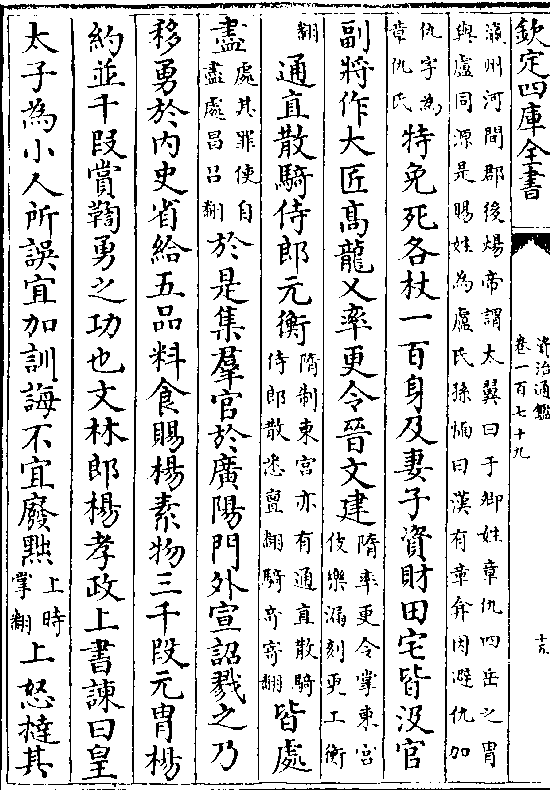 欽定四庫全書
資治通鑑
卷一百七十九
瀛州河間郡後煬帝謂太翼曰于卿姓章仇四岳之胄
與盧同源是賜姓為盧氏孫愐曰漢有章弇因避仇加
仇字為
章仇氏
特免死各杖一百身及妻子資財田宅皆没官
副將作大匠髙龍义率更令晉文建
隋率更令掌東宫
伎樂漏刻更工衡
翻
通直散騎侍郎元衡
隋制東宫亦有通直散騎
侍郎散悉亶翻騎奇寄翻
皆處
盡
處其罪使自
盡處昌吕翻
於是集羣官於廣陽門外宣詔戮之乃
移勇於内史省給五品料食賜楊素物三千段元胄楊
約並千段賞鞫勇之功也文林郎楊孝政上書諫曰皇
太子為小人所誤宜加訓誨不宜廢黜
上時
掌翻
上怒撻其